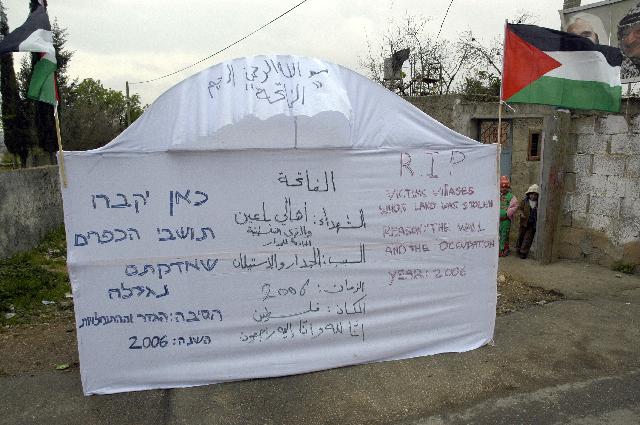 بسم الله الرحمن الرحيم
"الفاتحة"
כאן יקברו
תושבי הכפרים
שאדמתם
נגזלה
הסיבה: הגדר וההתנחלויות
השנה: 2006
الفاتحة
الشهداء: اهالي بلعين
السبب: الجدار والاستيطان
الزمان: 2006
المكان: فلسطين
انا لله وانا اليه راجعون
R.I.P
VICTIMS: VILLAGES
WHOS LAND WAS STOLEN
REASON: THE WALL
AND THE OCCUPATION
YEAR: 2006